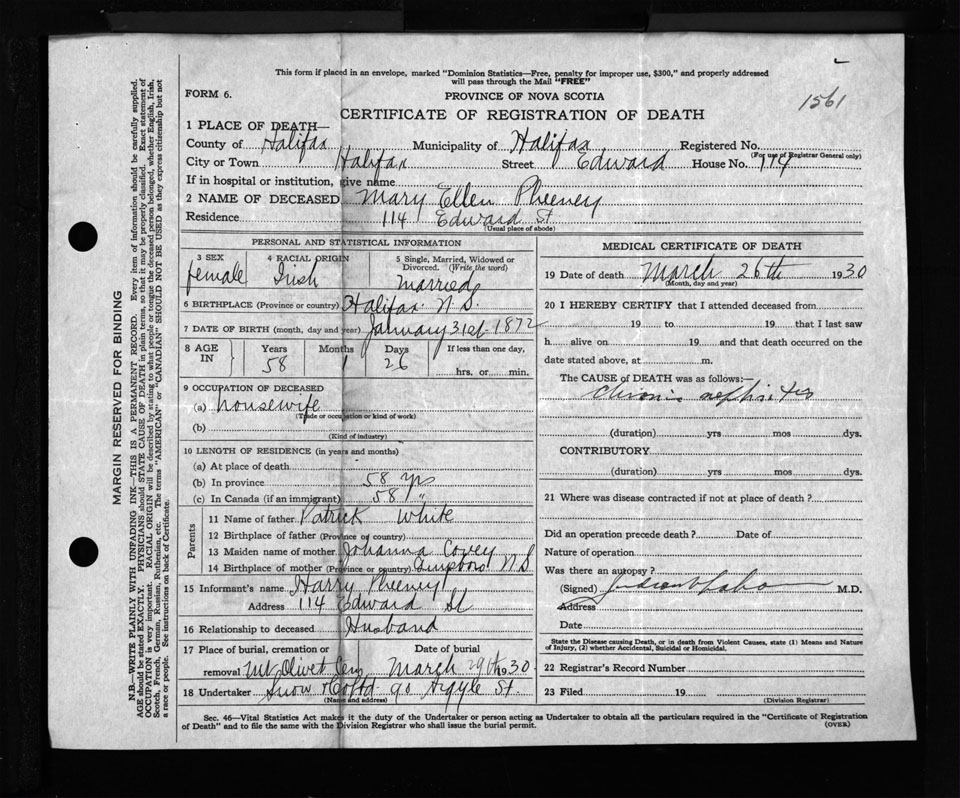 This form if placed in an envelope, marked "Dominion Statistics—Free, penalty for improper use, $300," and properly addressed
will pass through the Mail "FREE"
FORM 6.
PROVINCE OF NOVA SCOTIA
1561
CERTIFICATE OF REGISTRATION OF DEATH
1 PLACE OF DEATH—
County of Halifax Municipality of Halifax Registered No.
(For use of Registrar General only)
City or Town Halifax Street Edward House No. 114
If in hospital or institution, give name
2 NAME OF DECEASED Mary Ellen Pheeney
Residence 114 Edward St
(Usual place of abode)
PERSONAL AND STATISTICAL INFORMATION
3 SEX 4 RACIAL ORIGIN 5 Single, Married, Widowed or
Divorced. (Write the word)
female Irish Married
6 BIRTHPLACE (Province or country) Halifax N.S.
7 DATE OF BIRTH (month, day and year) January 31st 1872
8 AGE IN Years Months Days If less than one day,
58 1 26 hrs. or min.
9 OCCUPATION OF DECEASED
(a) housewife
(Trade or occupation or kind of work)
(b)
(Kind of industry)
10 LENGTH OF RESIDENCE (in years and months)
(a) At place of death
(b) In province 58 yrs
(c) In Canada (if an immigrant) 58 "
Parents
11 Name of father Patrick White
12 Birthplace of father (Province or country)
13 Maiden name of mother Johanna Covey
14 Birthplace of mother (Province or country) N S
15 Informant's name Harry Pheeney
Address 114 Edward St
16 Relationship to deceased Husband
17 Place of burial, cremation or Date of burial
removal Mt Olivet Cem March 29th 1930
18 Undertaker Snow & Co Ltd 90 Argyle St.
(Name and address)
MEDICAL CERTIFICATE OF DEATH
19 Date of death March 26th 1930
(Month, day and year)
20 I HEREBY CERTIFY that I attended deceased from
19 to 19 that I last saw
h alive on 19 and that death occurred on the
date stated above, at m.
The CAUSE of DEATH was as follows:—
Chronic nephritis
(duration) yrs mos dys.
CONTRIBUTORY
(duration) yrs mos dys.
21 Where was disease contracted if not at place of death?
Did an operation precede death? Date of
Nature of operation
Was there an autopsy?
(Signed) M.D.
Address
Date
State the Disease causing Death, or in death from Violent Causes, state (1) Means and Nature
of Injury, (2) whether Accidental, Suicidal or Homicidal.
22 Registrar's Record Number
23 Filed 19
(Division Registrar)
Sec. 46—Vital Statistics Act makes it the duty of the Undertaker or person acting as Undertaker to obtain all the particulars required in the "Certificate of Registration
of Death" and to file the same with the Division Registrar who shall issue the burial permit.
(OVER)
MARGIN RESERVED FOR BINDING
N.B.—WRITE PLAINLY WITH UNFADING INK—THIS IS A PERMANENT RECORD. Every item of information should be carefully supplied.
AGE should be stated EXACTLY. PHYSICIANS should STATE CAUSE OF DEATH in plain terms, so that it may be properly classified. Exact statement of
OCCUPATION is very important. RACIAL ORIGIN will be described by stating to what people or tongue the deceased person belonged, whether English, Irish,
Scotch, French, German, Russian, Ruthenian, etc. The terms "AMERICAN" or "CANADIAN" SHOULD NOT BE USED as they express citizenship but not
a race or people. See instructions on back of Certificate.